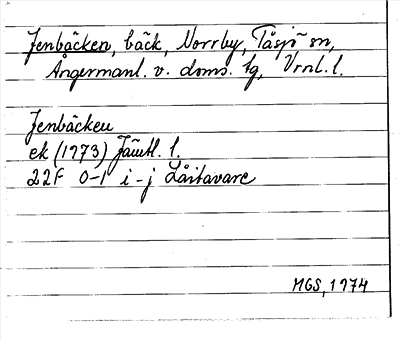 Jenbäcken, bäck, Norrby, Tåsjö sn,
Ångermanl. v. doms. tg, Vrnl. l.
Jenbäcken
ek (1973) Jämtl. l.
22F 0-1 i-j Låitavare
MGS, 1974